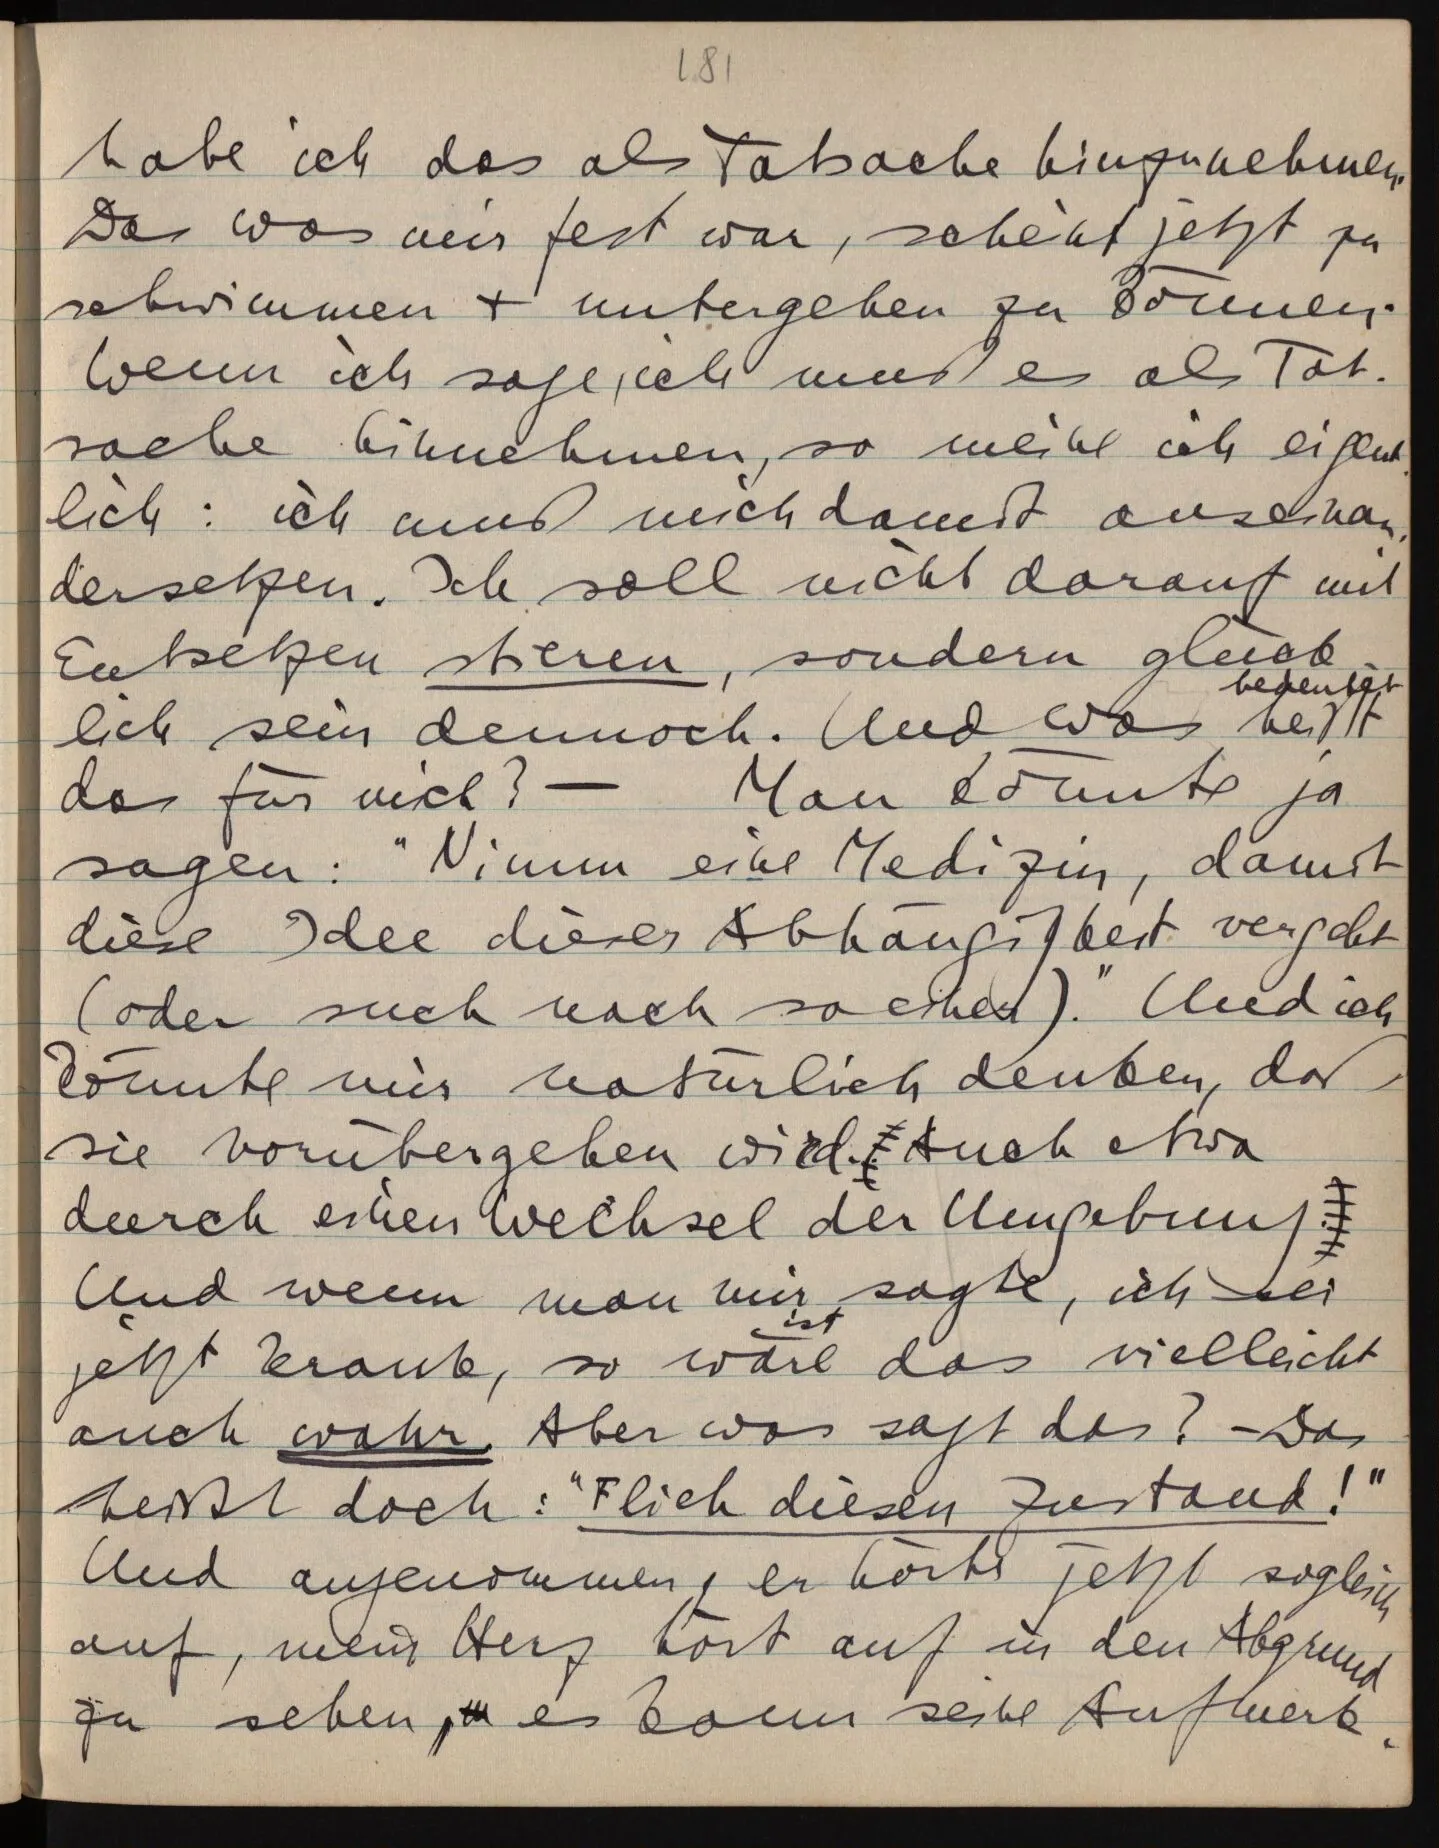 181
habe ich das als Tatsache hinzunehmen.
Das was mir fest war, scheint jetzt zu
schwimmen + untergehen zu können.
Wenn ich sage, ich muß es als Tat-
sache hinnehmen, so meine ich eigent-
lich: ich muß mich damit auseinan-
dersetzen. Ich soll nicht darauf mit
Entsetzen stieren, sondern glück-
bedeutet
lich sein dennoch. Und was heißt
das für mich? — Man könnte ja
sagen: "Nimm eine Medizin, damit
diese Idee dieser Abhängigkeit vergeht
(oder such nach so einer)." Und ich
könnte mir natürlich denken, daß
sie vorübergehen wird. Auch etwa
durch einen Wechsel der Umgebung
Und wenn man mir sagte, ich sei
ist
jetzt krank, so wäre das vielleicht
auch wahr. Aber was sagt das? – Das
heißt doch: "Flieh diesen Zustand!"
Und angenommen, er hörte jetzt sogleich
auf, mein Herz hört auf in den Abgrund
zu sehen, es kann seine Aufmerk-